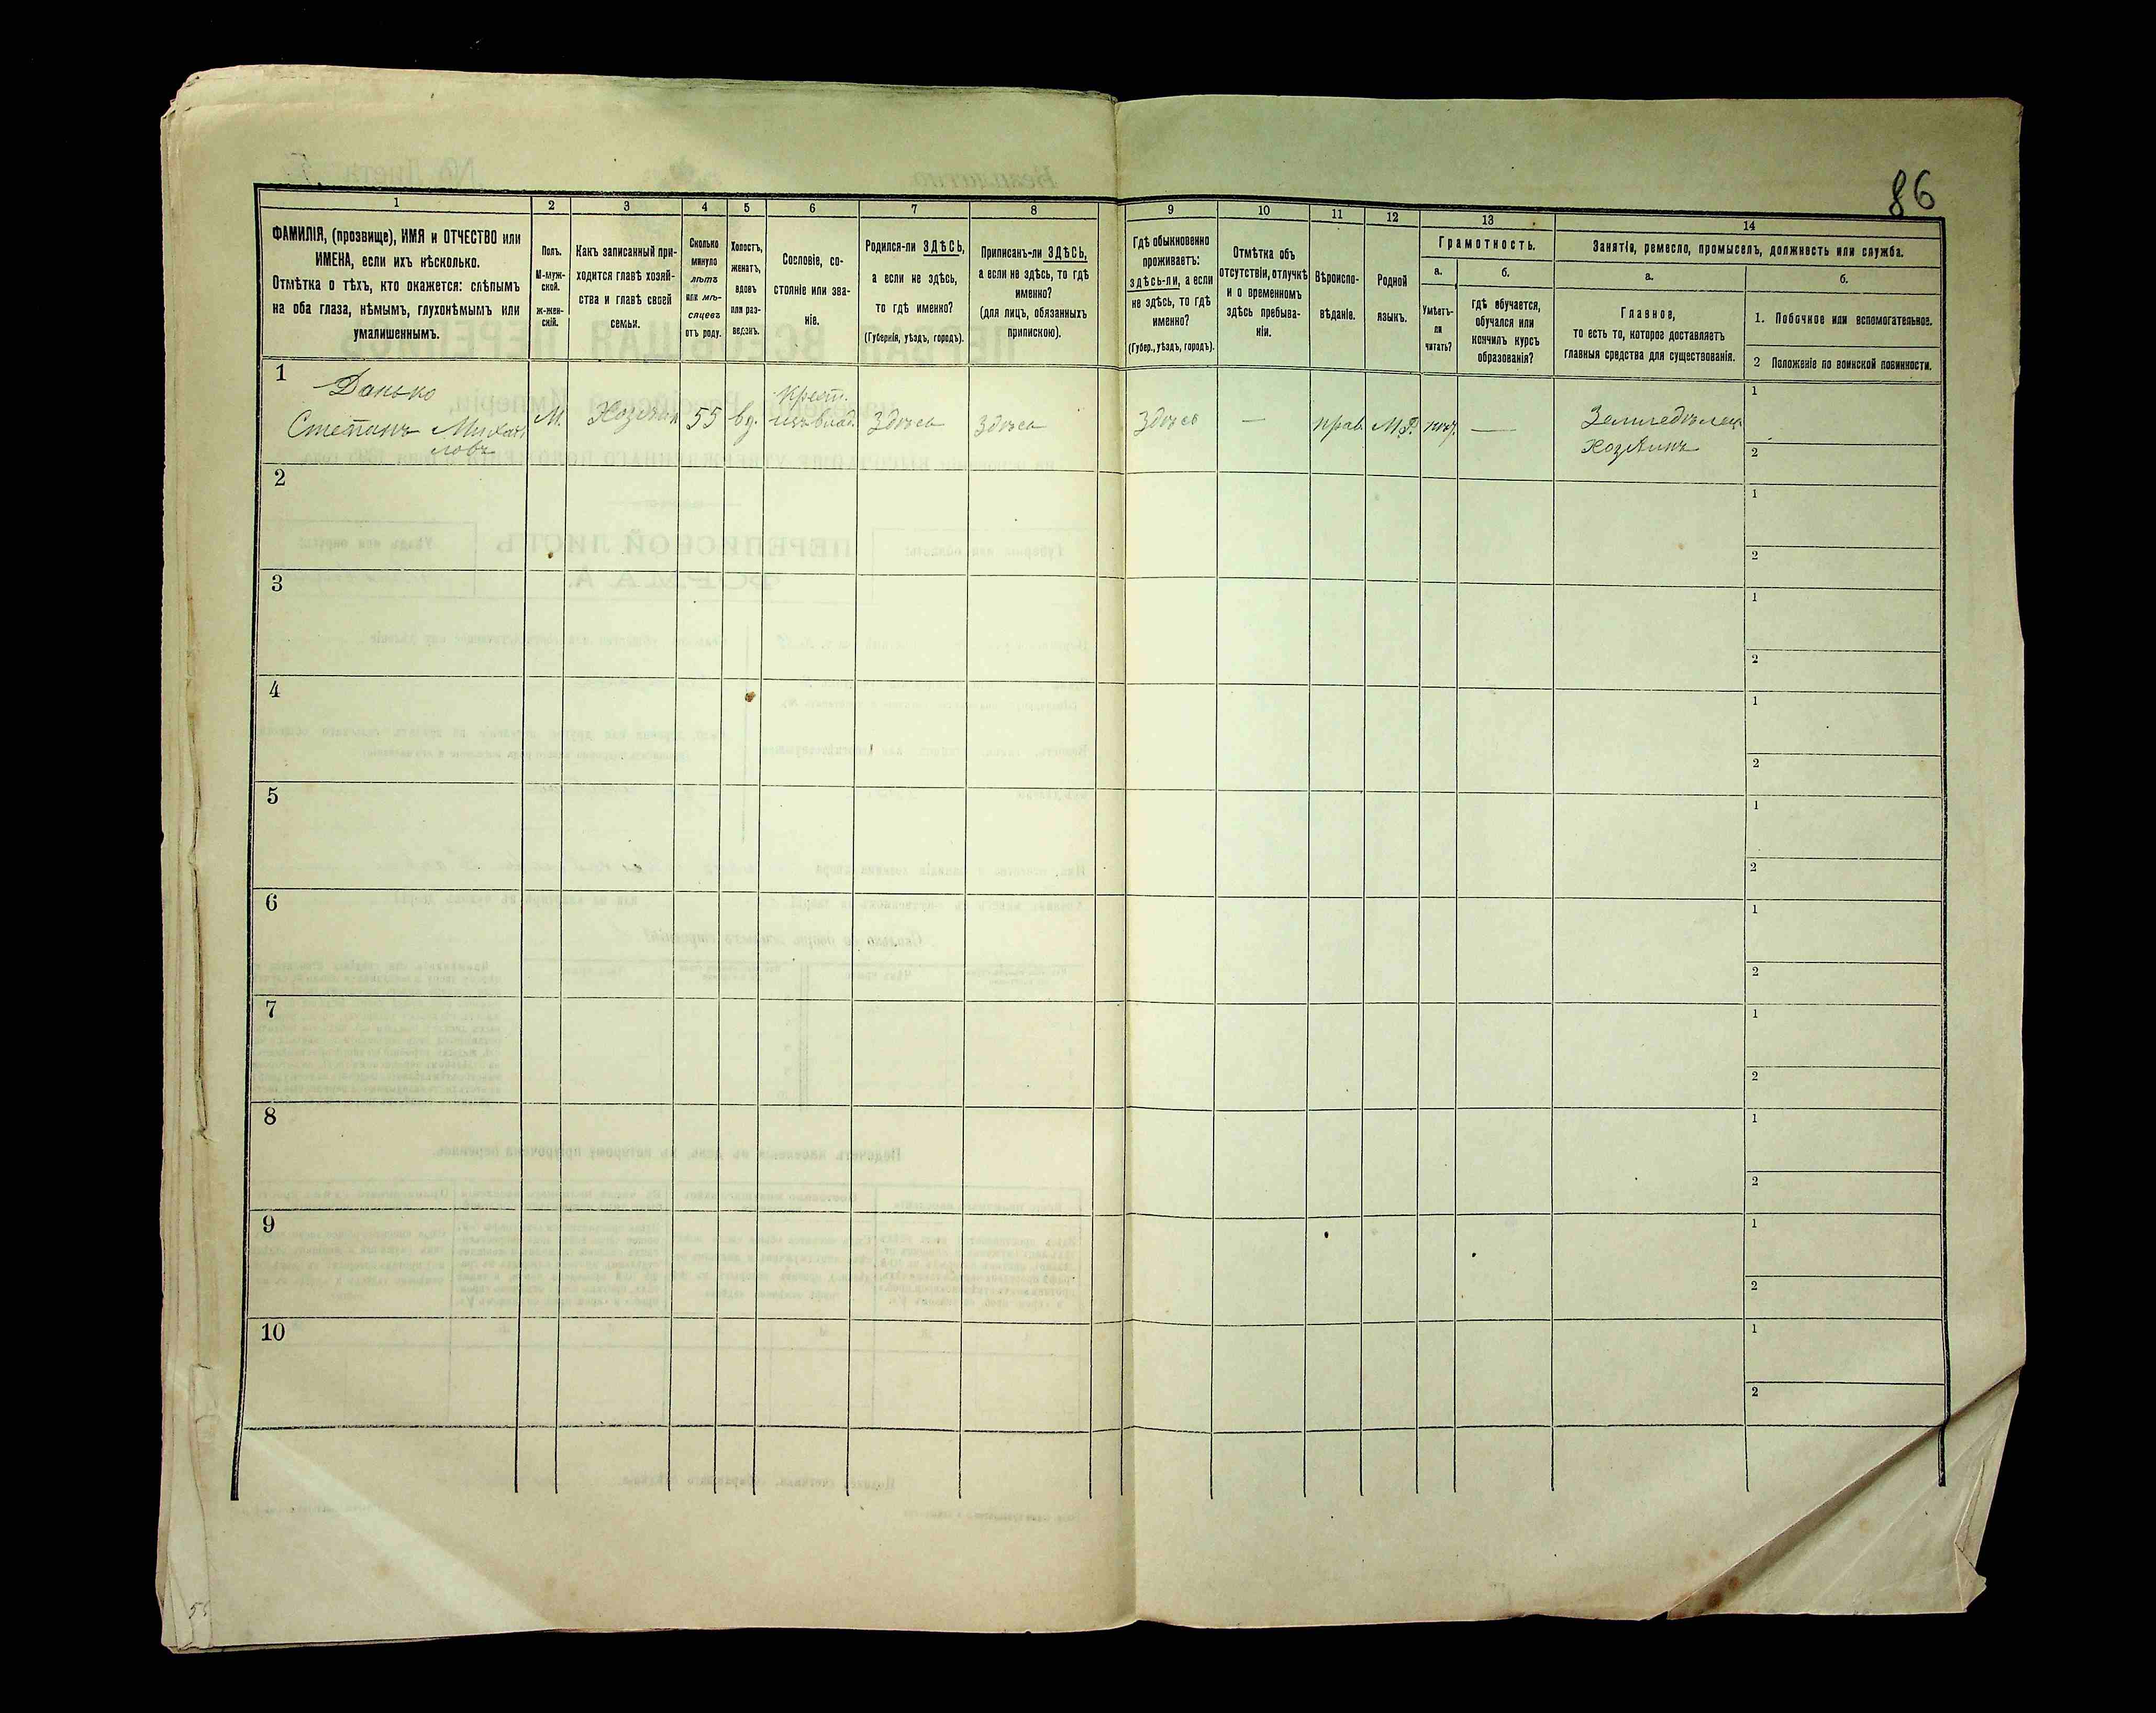 86
1
2
3
4
5
6
7
8
9
10
11
12
13
14
ФАМИЛІЯ, (прозвище), ИМЯ и ОТЧЕСТВО или
ИМЕНА, если ихъ нѣсколько.
Отмѣтка о тѣхъ, кто окажется: слѣпымъ
на оба глаза, нѣмымъ, глухонѣмымъ или
умалишеннымъ.
Полъ.
М-муж-
ской.
ж-жен-
скій.
Какъ записанный при-
ходится главѣ хозяй-
ства и главѣ своей
семьи.
Сколько
минуло
лѣтъ
или мѣ-
сяцевъ
отъ роду.
Холостъ,
женатъ,
вдовъ
или раз-
веденъ.
Сословіе, со-
стояніе или зва-
ніе.
Родился-ли ЗДѢСЬ,
а если не здѣсь,
то гдѣ именно?
(Губернія, уѣздъ, городъ).
Приписанъ-ли ЗДѢСЬ,
а если не здѣсь, то гдѣ
именно?
(для лицъ, обязанныхъ
припискою).
Гдѣ обыкновенно
проживаетъ:
здѣсь-ли, а если
не здѣсь, то гдѣ
именно?
(Губер., уѣздъ, городъ).
Отмѣтка объ
отсутствіи, отлучкѣ
и о временномъ
здѣсь пребыва-
ніи.
Вѣроиспо-
вѣданіе.
Родной
языкъ.
Грамотность.
а.
б.
Умѣетъ-
ли
читать?
гдѣ обучается,
обучался или
кончилъ курсъ
образованія?
Занятія, ремесло, промыселъ, должность или служба.
а.
б.
Главное,
то есть то, которое доставляетъ
главныя средства для существованія.
1. Побочное или вспомогательное.
2 Положеніе по воинской повинности.
1
Данько
Степанъ Михай
ловъ
М.
Хозяинъ
55
вд.
крест.
изъ влад.
Здѣсь
Здѣсь
Здѣсь
—
прав.
М.Р.
—
Земледѣлецъ
Хозяинъ
1
2
2
1
2
3
1
2
4
1
2
5
1
2
6
1
2
7
1
2
8
1
2
9
1
2
10
1
2